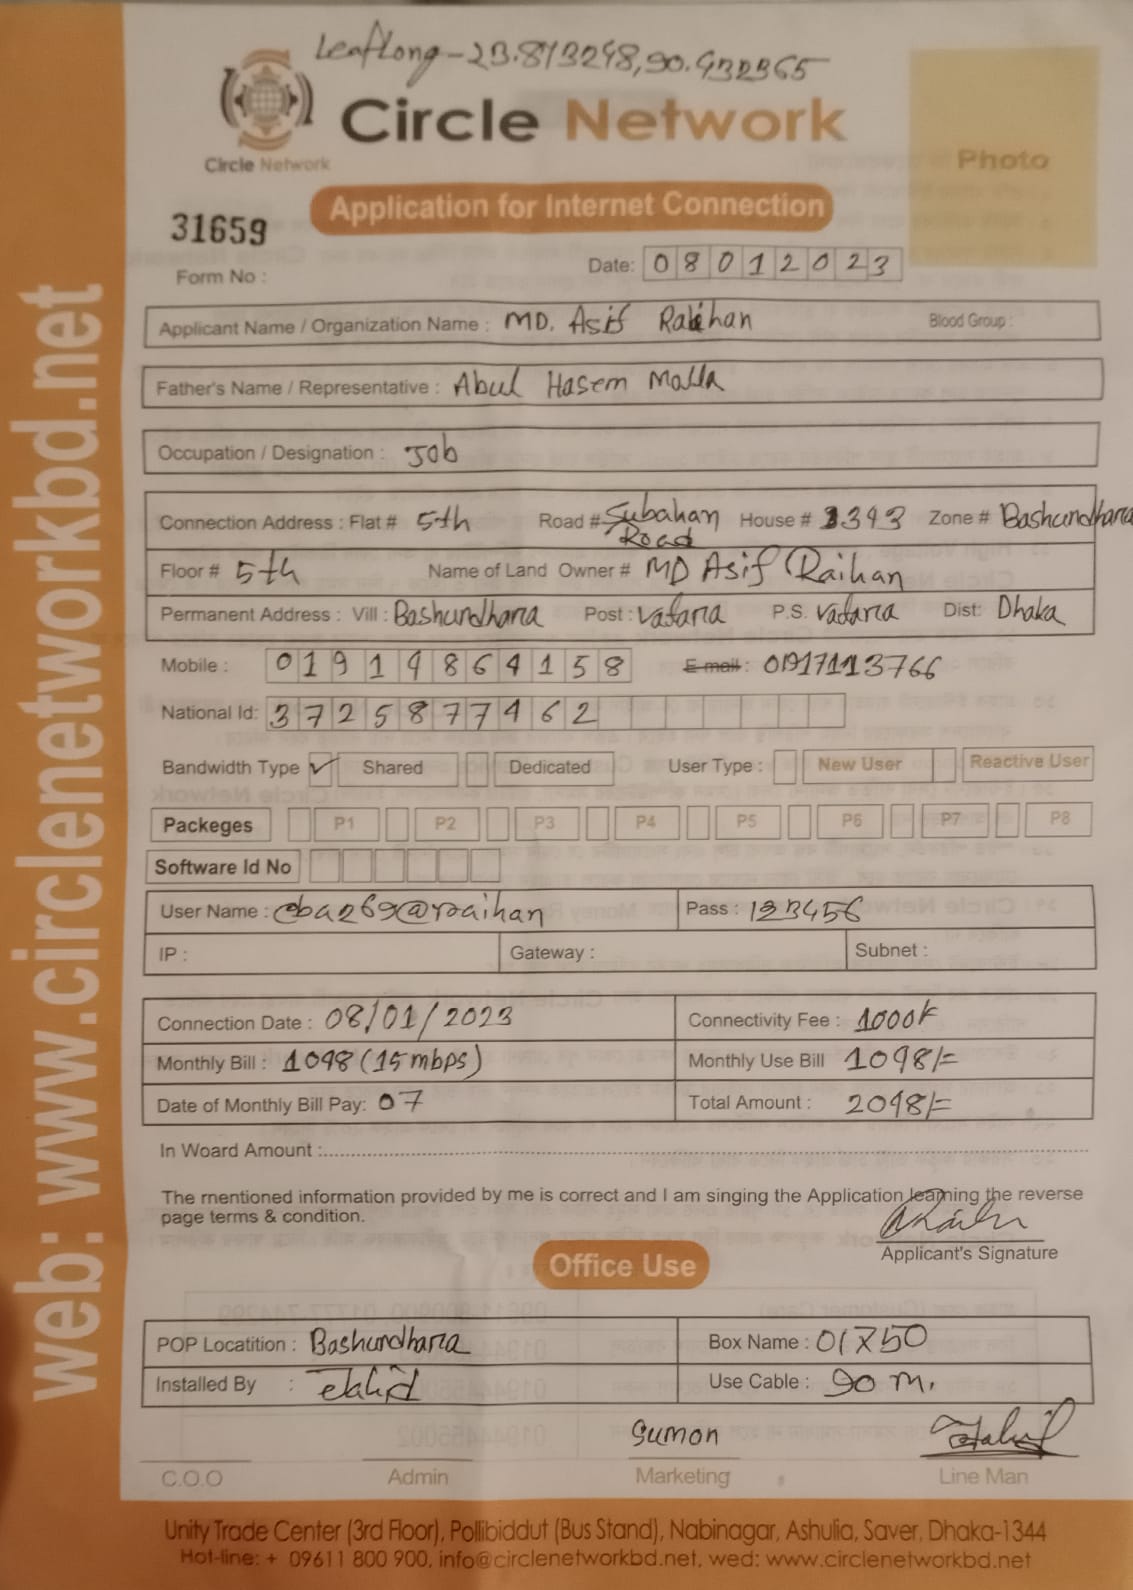 Leaflong-23.813248,90.432365
Circle Network
Circle Network
Photo
Application for Internet Connection
31659
Form No :
Date: 08012023
Applicant Name / Organization Name : MD. Asif Raihan Blood Group :
Father's Name / Representative : Abul Hasem Molla
Occupation / Designation : Job
Connection Address : Flat # 5th Road # Subahan Road House # 1343 Zone # Bashundhara
Floor # 5th Name of Land Owner # MD Asif Raihan
Permanent Address : Vill : Bashundhara Post : Vatara P.S. Vatara Dist: Dhaka
Mobile : 01919864158 E-mail : 01917113766
National Id: 3725877462
Bandwidth Type ✓ Shared Dedicated User Type : New User Reactive User
Packeges P1 P2 P3 P4 P5 P6 P7 P8
Software Id No
User Name : cba269@raihan Pass : 123456
IP : Gateway : Subnet :
Connection Date : 08/01/2023 Connectivity Fee : 1000/=
Monthly Bill : 1098 (15 mbps) Monthly Use Bill 1098/=
Date of Monthly Bill Pay: 07 Total Amount : 2098/=
In Woard Amount :
The mentioned information provided by me is correct and I am singing the Application learning the reverse
page terms & condition.
Applicant's Signature
Office Use
POP Locatition : Bashundhara Box Name : 01750
Installed By : Jahid Use Cable : 90 m.
Sumon
C.O.O Admin Marketing Line Man
Unity Trade Center (3rd Floor), Pollibiddut (Bus Stand), Nabinagar, Ashulia, Saver, Dhaka-1344
Hot-line: + 09611 800 900, info@circlenetworkbd.net, wed: www.circlenetworkbd.net
web: www.circlenetworkbd.net